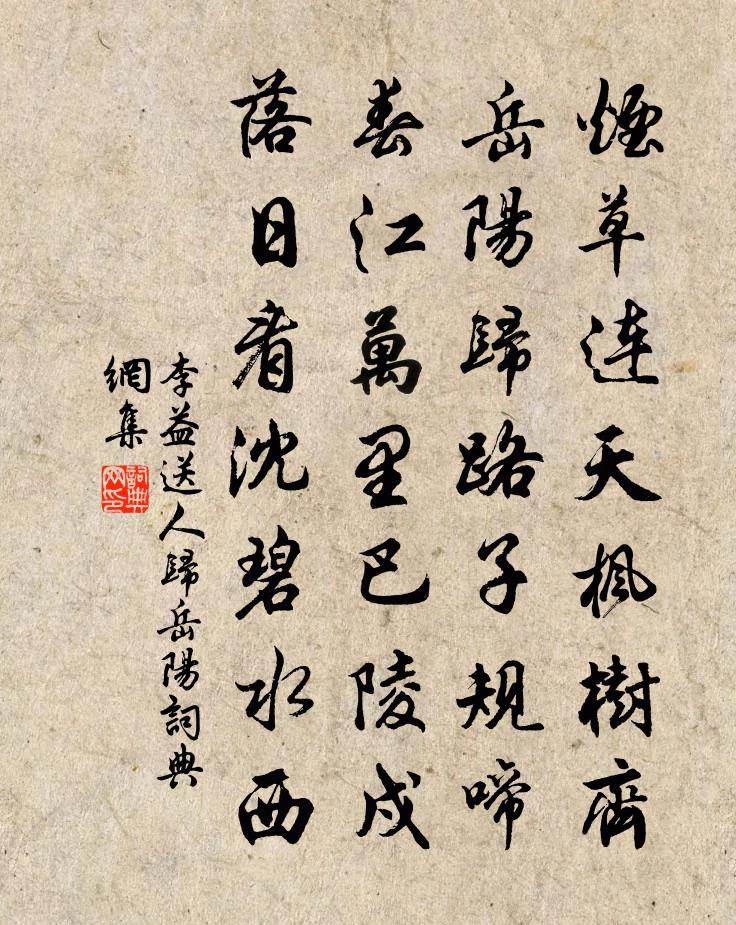 煙草連天楓樹齊
岳陽歸路子規啼
春江萬里巴陵戍
落日看沈碧水西
李益送人歸岳陽詞典
網集
詞典
网印